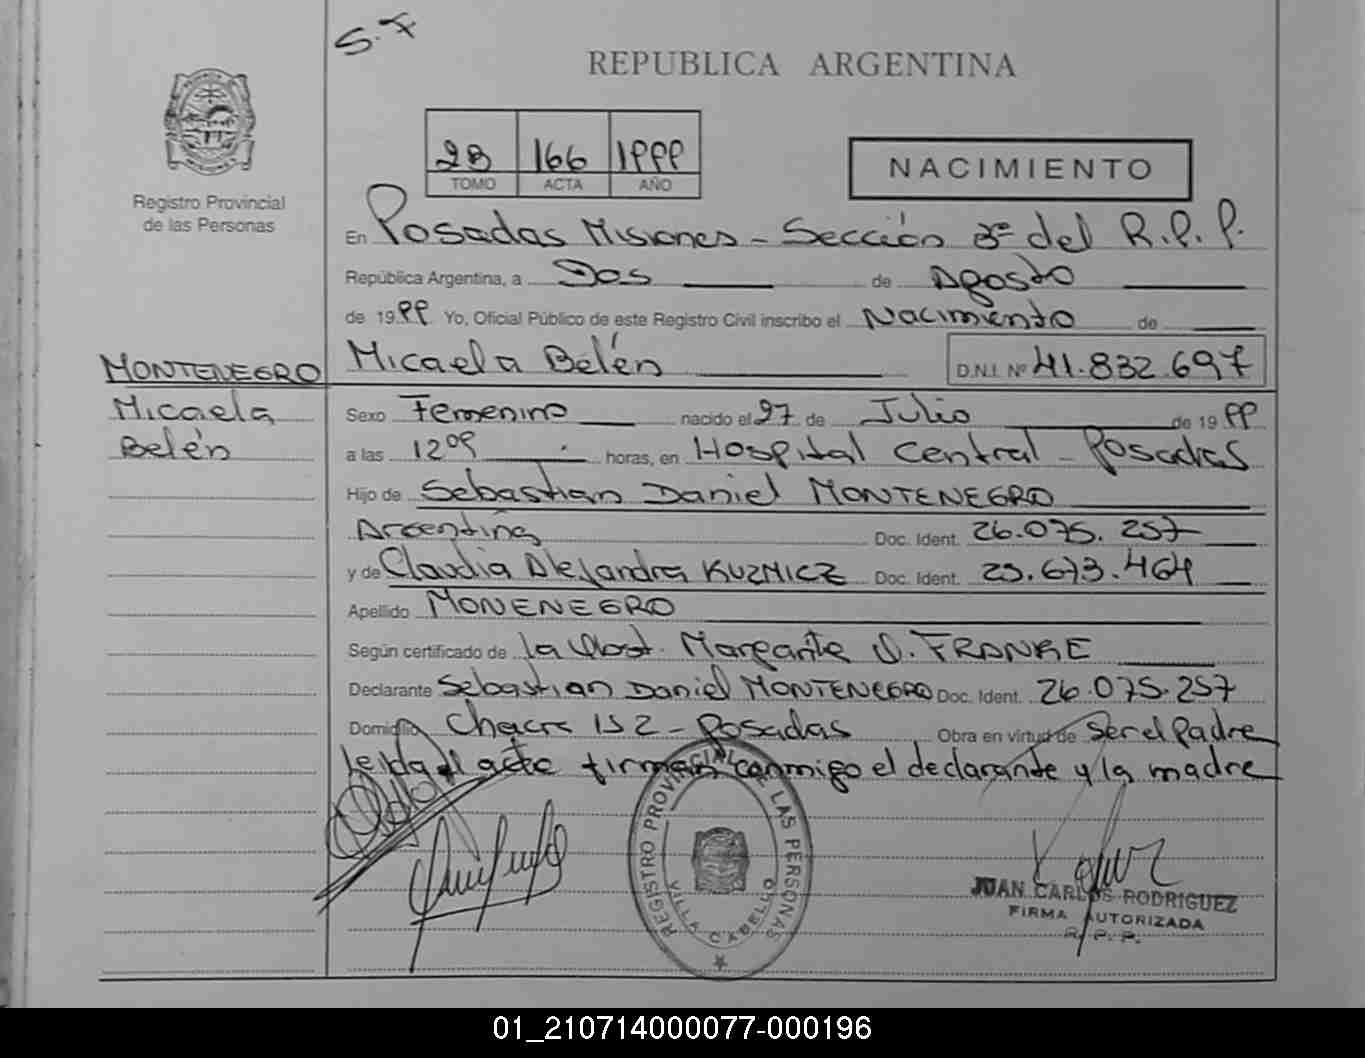 S.F
REPUBLICA ARGENTINA
Registro Provincial
de las Personas
2B 166 1999
TOMO ACTA AÑO
NACIMIENTO
En Posadas Misiones - Sección 3ª del R.P.P.
República Argentina, a Dos de Agosto
de 1999 Yo, Oficial Público de este Registro Civil inscribo el Nacimiento de
Micaela Belén D.N.I. Nº 41.832.697
MONTENEGRO
Micaela
Belén
Sexo Femenino nacido el 27 de Julio de 1999
a las 12 09 horas, en Hospital Central - Posadas
Hijo de Sebastian Daniel MONTENEGRO
Argentina Doc. Ident. 26.075.257
y de Claudia Alejandra KUZMICZ Doc. Ident. 25.673.464
Apellido MONENEGRO
Según certificado de la Obst. Margarita FRANKE
Declarante Sebastian Daniel MONTENEGRO Doc. Ident. 26.075.257
Domicilio Chacra 152 - Posadas Obra en virtud de Ser el Padre
leida el acta firman conmigo el declarante y la madre
REGISTRO PROVINCIAL DE LAS PERSONAS
VILLA CABELLO
JUAN CARLOS RODRIGUEZ
FIRMA AUTORIZADA
R. P. P.
01_210714000077-000196